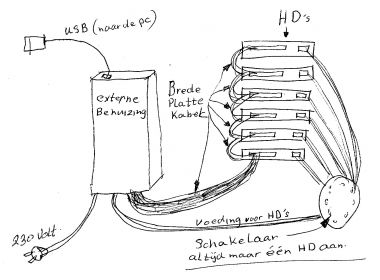 HD's
USB (naar de pc)
externe
Behuizing
Brede
Platte
Kabel
230 Volt.
Voeding voor HD's
Schakelaar
altijd maar één HD aan.